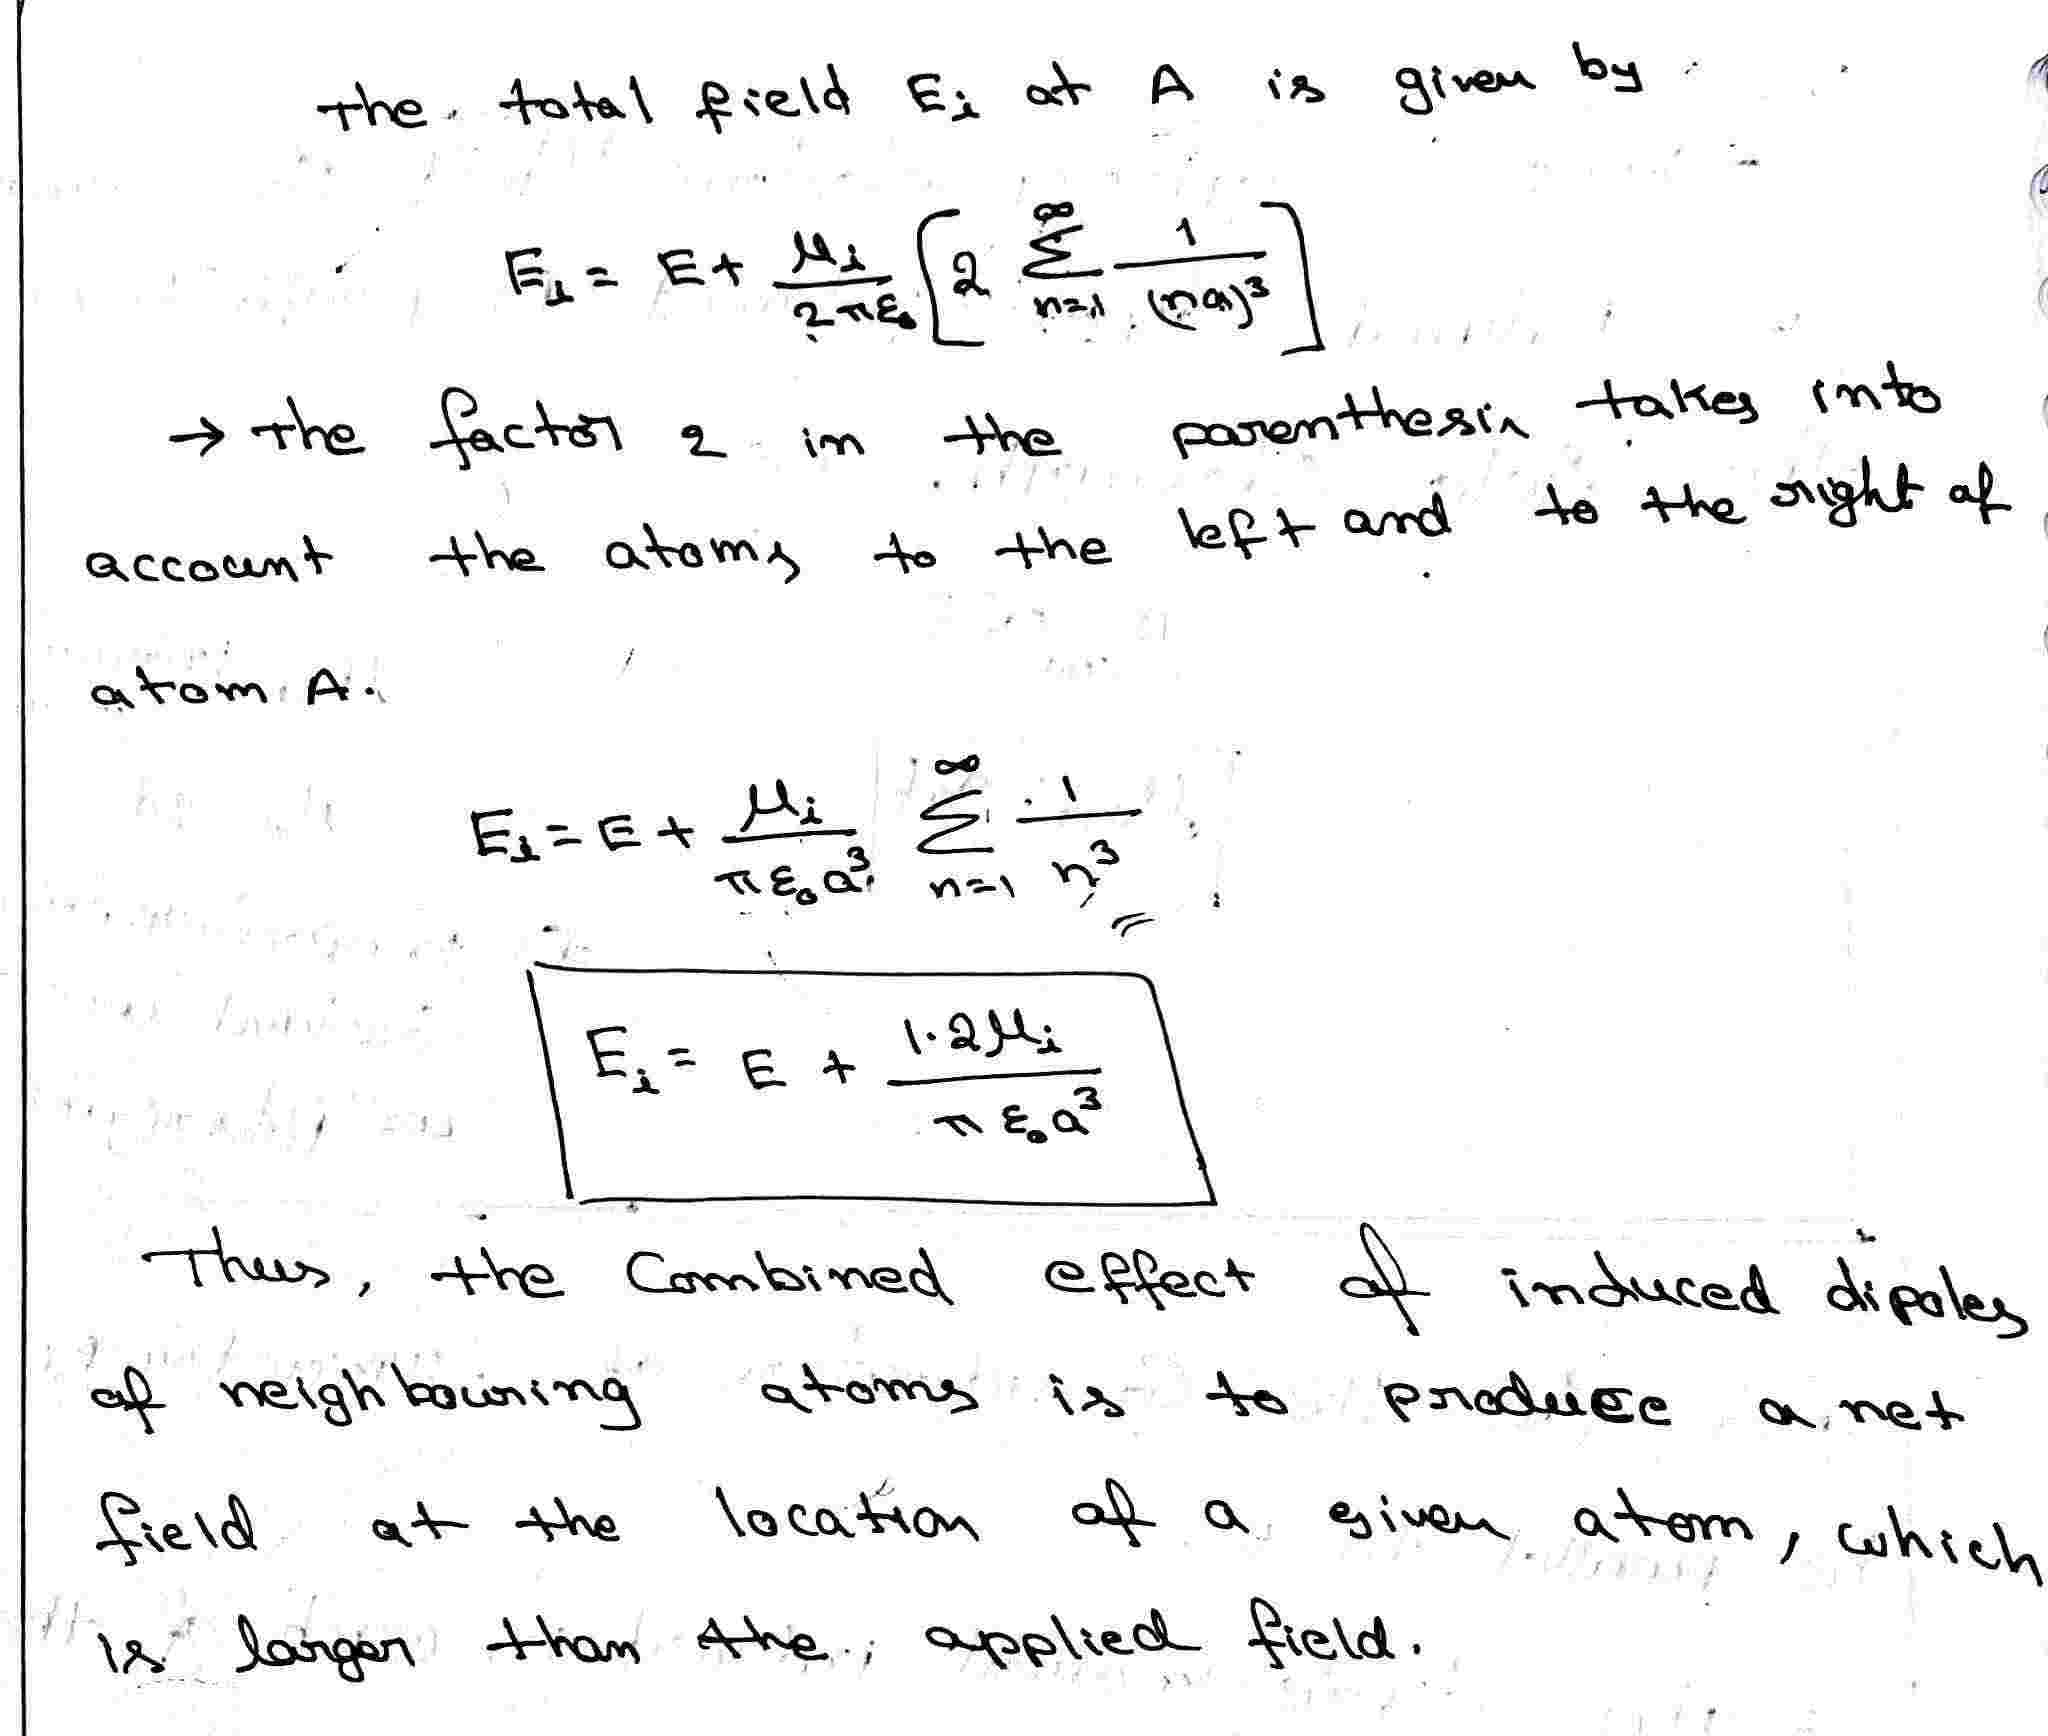 The total field Eᵢ at A is given by
Eᵢ = E + μᵢ / 2πε₀ [ 2 ∞Σn=1 1/(na)³ ]
→ The factor 2 in the parenthesis takes into
account the atoms to the left and to the right of
atom A.
Eᵢ = E + μᵢ / πε₀a³ ∞Σn=1 1/n³
Eᵢ = E + 1.2μᵢ / πε₀a³
Thus, the Combined effect of induced dipoles
of neighbouring atoms is to produce a net
field at the location of a given atom, which
is larger than the applied field.